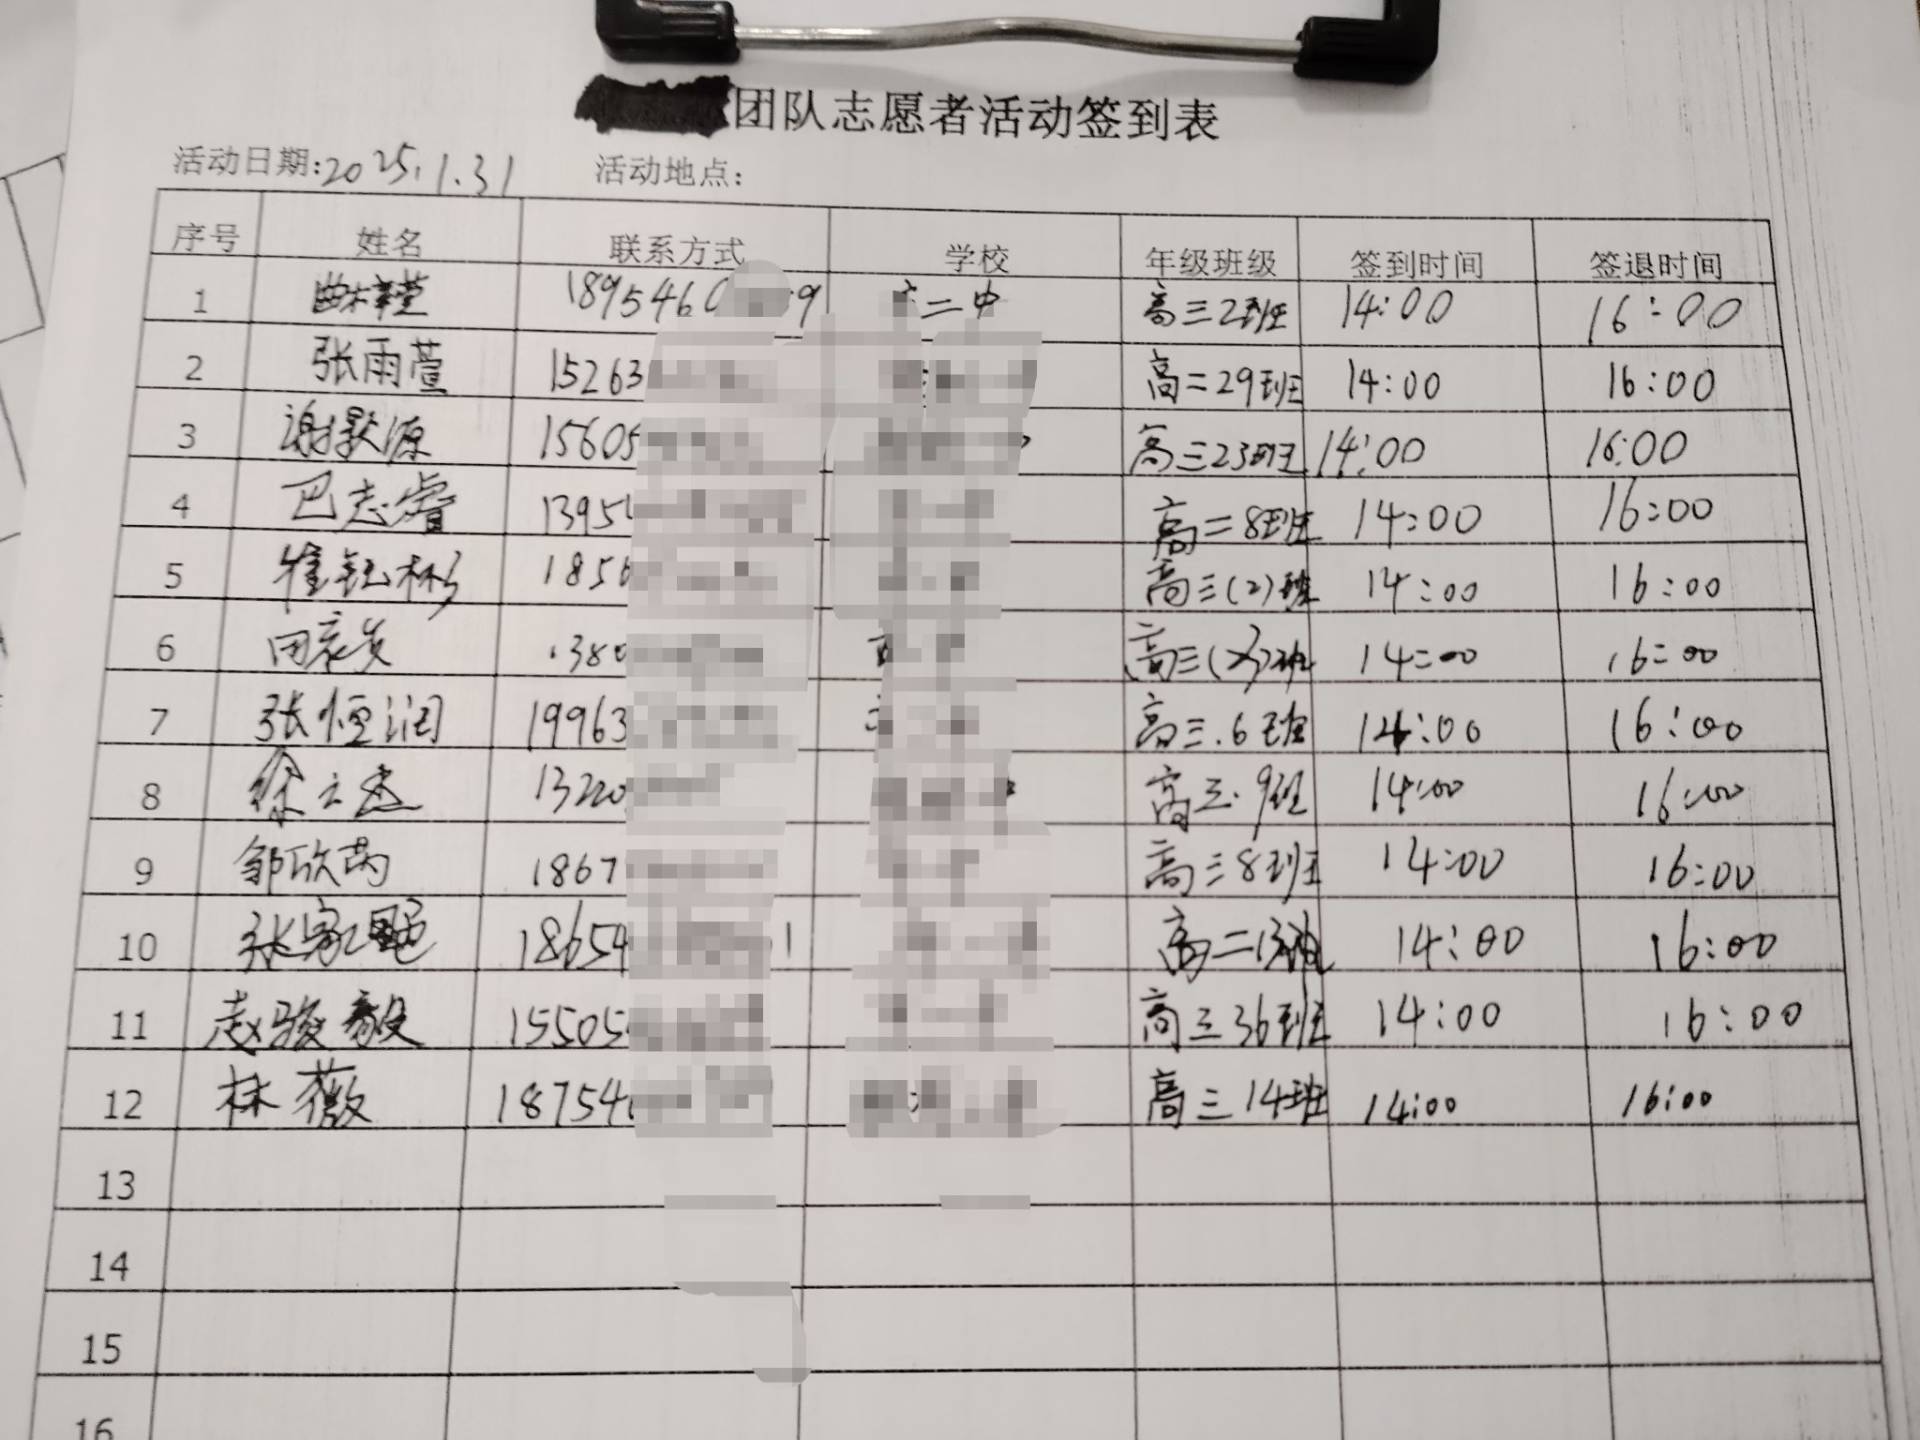 团队志愿者活动签到表
活动日期:2025.1.31 活动地点:
序号 姓名 联系方式 学校 年级班级 签到时间 签退时间
1 1895460 9 二中 高三2班 14:00 16:00
2 张雨萱 15263 高二29班 14:00 16:00
3 谢默源 15605 高三23班 14:00 16:00
4 巴志睿 1395 高二8班 14:00 16:00
5 崔钰彬 185 高三(2)班 14:00 16:00
6 田 380 高三( )班 14:00 16:00
7 张恒润 19963 高三.6班 14:00 16:00
8 徐 杰 13220 高三.9班 14:00 16:00
9 邹欣芮 1867 高三8班 14:00 16:00
10 张家 18654 1 高二13班 14:00 16:00
11 赵骏毅 15505 高三36班 14:00 16:00
12 林薇 18754 高三14班 14:00 16:00
13
14
15
16